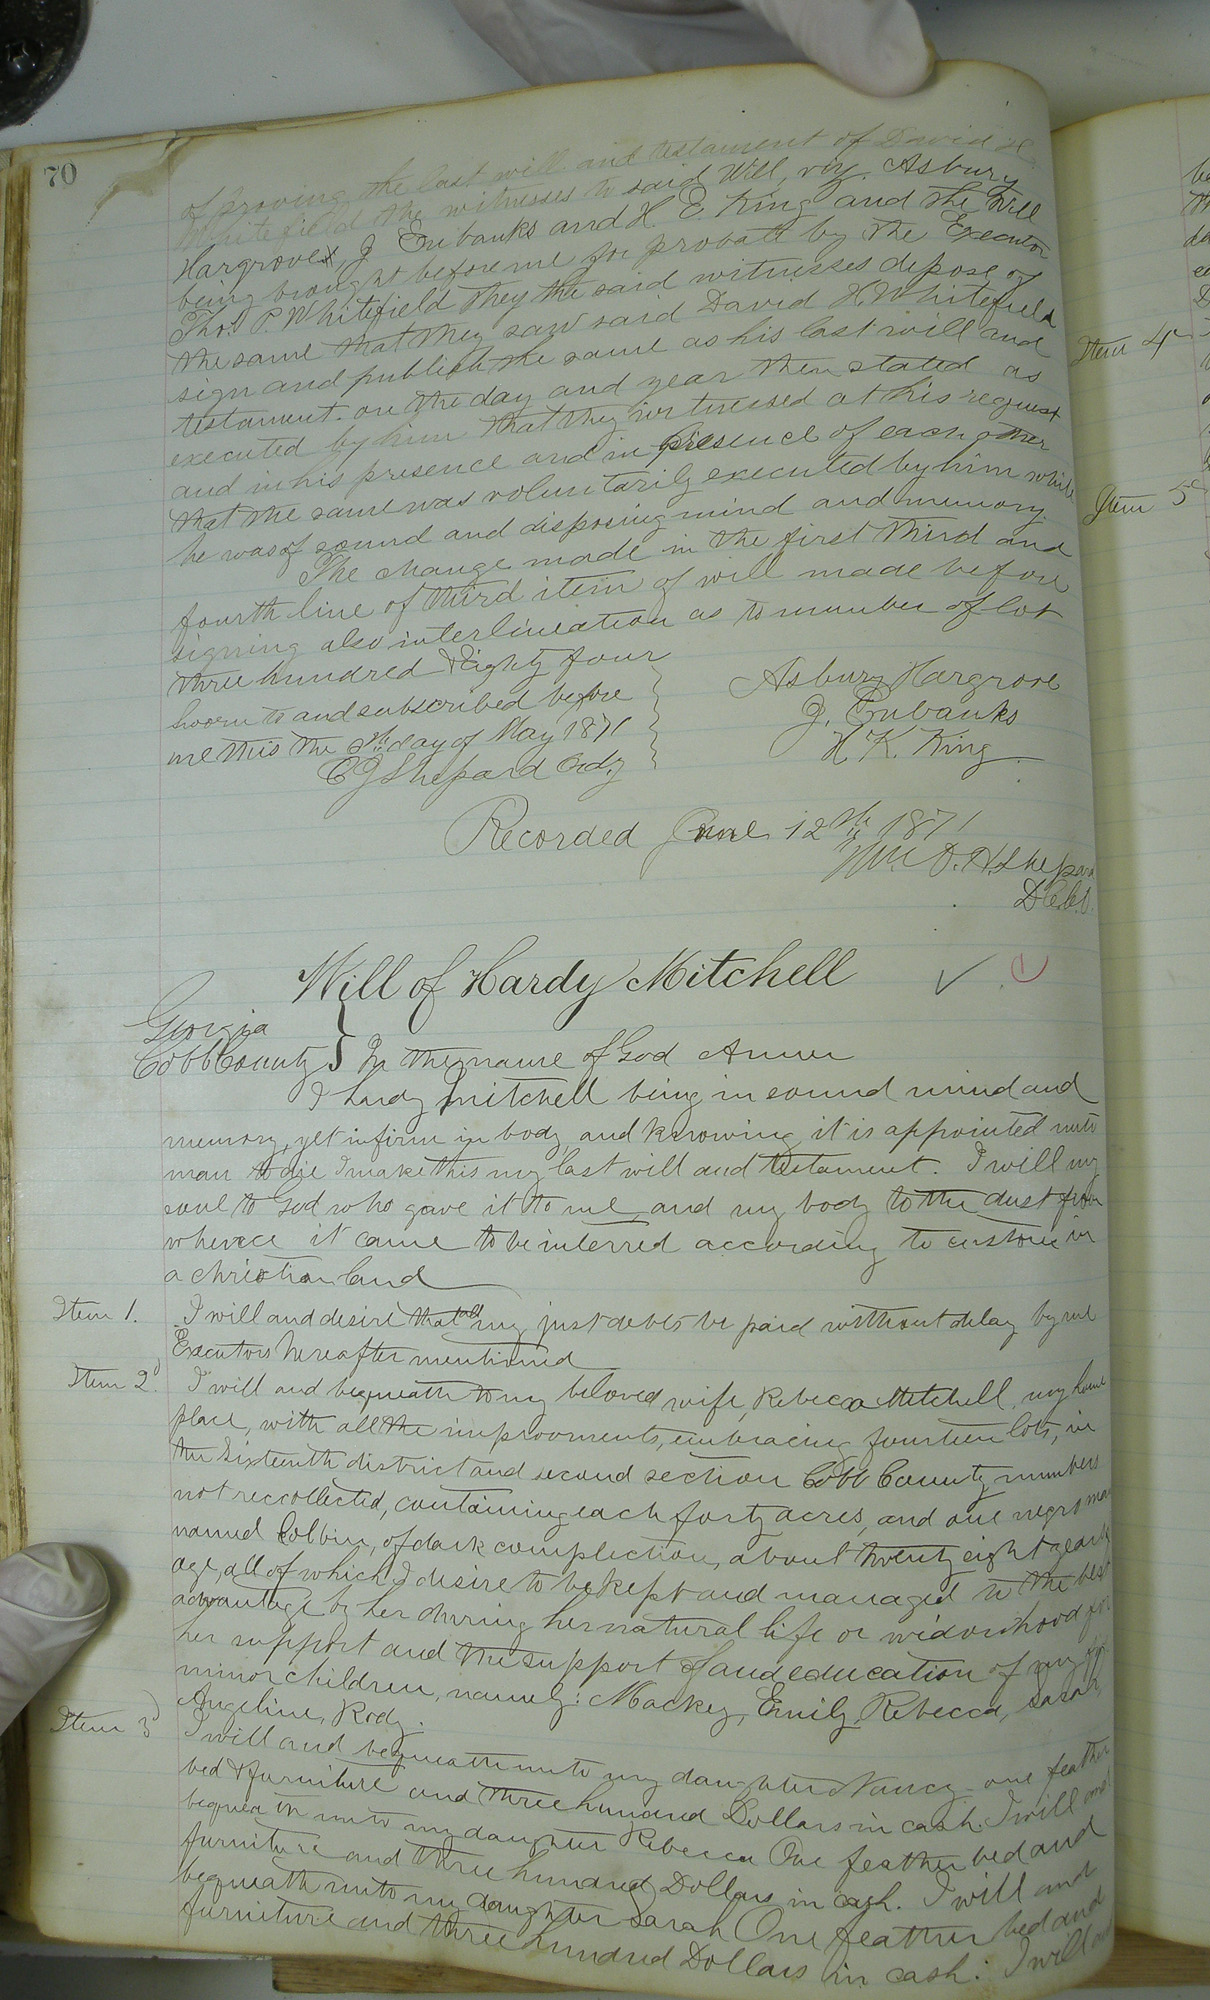 70
of proving the last will and testament of David H.
Whitefield the witnesses to said Will, viz. Asbury
Hargrove, J Eubanks and H. E. King and the Will
being brought before me for probate by the Executor
Thos. P. Whitefield They the said witnesses depose of
the same that they saw said David H. Whitefield
sign and publish the same as his last will and
testament on the day and year then stated as
executed by him that they witnessed at his request
and in his presence and in presence of each other
that the same was voluntarily executed by him while
he was of sound and disposing mind and memory
The change made in the first third and
fourth line of third item of will made before
signing also interlineation as to number of lot
three hundred & Eighty four
Sworn to and subscribed before
me this the day of May 1871
C J Shepard Ordy
Asbury Hargrove
J. Eubanks
H. K. King
Recorded June 12th 1871
Wm. D. H. Shepard
Will of Hardy Mitchell
Georgia
Cobb County } In the name of God Amen
I Hardy Mitchell being in sound mind and
memory, yet infirm in body and knowing it is appointed unto
man to die I make this my last will and testament. I will my
soul to God who gave it to me and my body to the dust from
whence it came to be interred according to custom in
a christian land
Item 1. I will and desire that all my just debts be paid without delay by me
Executors hereafter mentioned
Item 2d I will and bequeath to my beloved wife, Rebecca Mitchell, my home
place, with all the improvements, embracing fourteen lots, in
the Sixteenth district and second section Cobb County numbers
not reccollected, containing each forty acres, and one negro man
named Colbin, of dark complection, about twenty eight years
age, all of which I desire to be kept and managed to the best
advantage by her during her natural life or widowhood for
her support and the support of and education of my
minor children, namely: Mackey, Emily, Rebecca, Sarah,
Angeline, Rody.
Item 3d I will and bequeath unto my daughter Nancy one feather
bed & furniture and three hundred Dollars in cash. I will and
bequeath unto my daughter Rebecca One feather bed and
furniture and three hundred Dollars in cash. I will and
bequeath unto my daughter Sarah One feather bed and
furniture and three hundred Dollars in cash. I will and
Item 4
Item 5